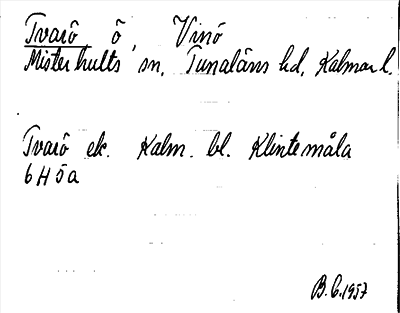 Tvarö ö, Vinö
Misterhults sn, Tunaläns hd, Kalmar l.
Tvarö ek. Kalm. bl. Klintemåla
6H5a
B.C.1957